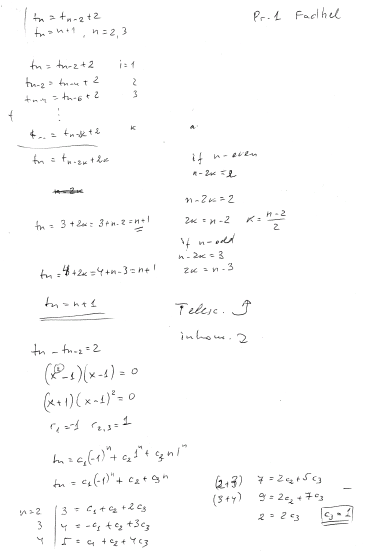 Pr. 1 Fadhel
tn = tn-2 + 2
tn = n+1, n = 2,3
tn = tn-2 + 2 i=1
tn-2 = tn-4 + 2 2
tn-4 = tn-6 + 2 3
⋮
= tn-2k + 2 k
tn = tn-2k + 2k
if n-even
n-2k = 2
n-2k = 2
tn = 3 + 2k = 3 + n-2 = n+1
2k = n-2 k = n-2/2
if n-odd
n-2k = 3
tn = 4 + 2k = 4 + n-3 = n+1
2k = n-3
tn = n+1
Telesc.
inhom. 2
tn - tn-2 = 2
(x²-1)(x-1) = 0
(x+1)(x-1)² = 0
r1 = -1 r2,3 = 1
tn = c1(-1)^n + c2 1^n + c3 n 1^n
tn = c1(-1)^n + c2 + c3n
n=2 3 = c1 + c2 + 2c3
3 4 = -c1 + c2 + 3c3
4 5 = c1 + c2 + 4c3
(2+3) 7 = 2c2 + 5c3
(3+4) 9 = 2c2 + 7c3
2 = 2c3 c3 = 1